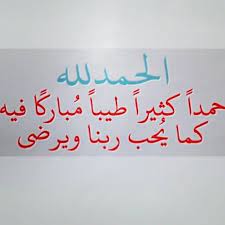 الحمدلله
حمداً كثيراً طيباً مُباركًا فيه
كما يُحب ربنا ويرضى